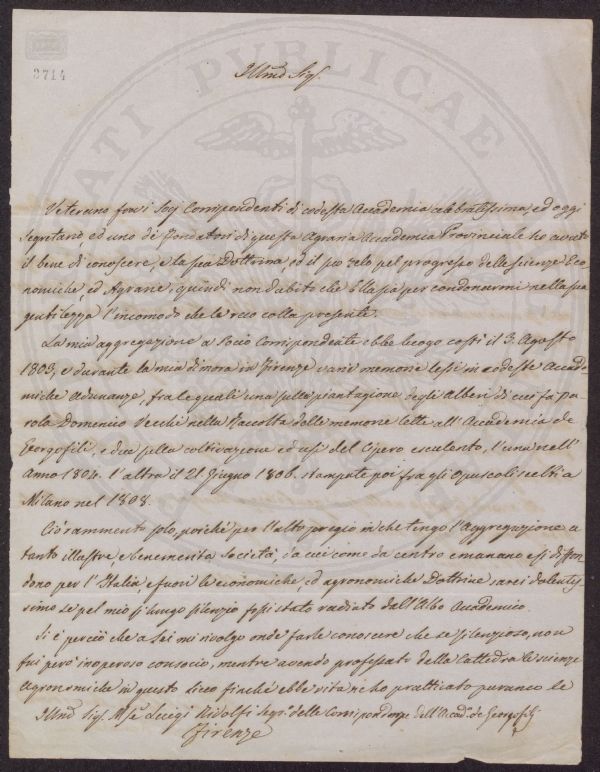 3714
PUBLICAE
Illmo Sig.
Veterano fra i Soci Corrispondenti di codesta Accademia celebratissima, ed oggi
Segretario, ed uno de' Fondatori di questa Agraria Accademia Provinciale ho avuto
il bene di conoscere, e la sua Dottrina, ed il suo zelo pel progresso delle scienze Eco-
nomiche, ed Agrarie, quindi non dubito che Ella sia per condonarmi nella sua
gentilezza l'incomodo che le reco colla presente.
La mia aggregazione a Socio Corrispondente ebbe luogo costì il 3. Agosto
1803, e durante la mia dimora in Firenze varie memorie lessi in codeste Accade-
miche adunanze, fra le quali una sulla piantagione degli Alberi di cui fa pa-
rola Domenico Vecchi nella Raccolta delle memorie lette all'Accademia de
Georgofili, e due sulla coltivazione ed usi del Cipero esculento, l'una nell'
Anno 1804. l'altra il 21 Giugno 1806. stampate poi fra gli Opuscoli scelti a
Milano nel 1808.
Ciò rammento solo, poichè per l'alto pregio in che tengo l'Aggregazione a
tanto illustre, e benemerita Società, da cui come da centro emanano e si diffon-
dono per l'Italia, e fuori le economiche, ed agronomiche Dottrine sarei dolentis-
simo se pel mio sì lungo silenzio fossi stato radiato dall'Albo Accademico.
Si è perciò che a Lei mi rivolgo onde farle conoscere che se silenzioso, non
fui però inoperoso consocio, mentre avendo professato dalla Cattedra le scienze
Agronomiche in questo liceo finchè ebbe vita, ne ho pratticato puranco le
Illmo Sig. Mse Luigi Ridolfi Segr. delle Corrispondenze dell'Accad. de Georgofili
Firenze